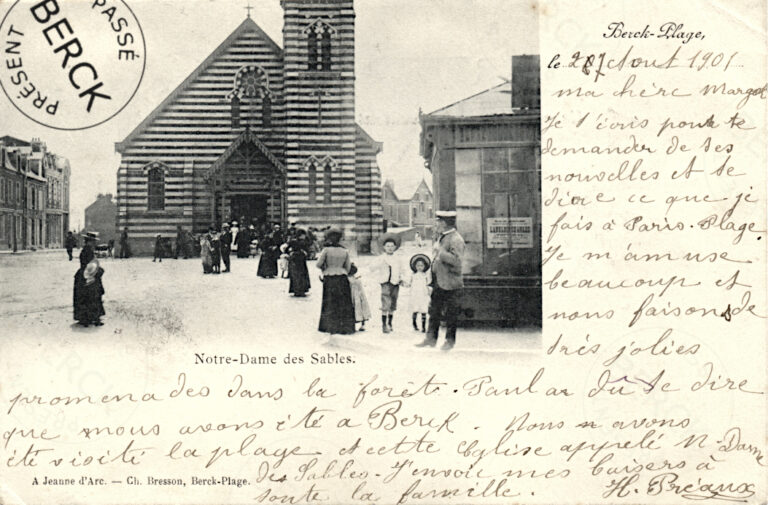 PASSÉ
PRÉSENT
BERCK
Berck-Plage,
le 27 Aout 1901
Ma chère Margot
Je t'écris pour te
demander de tes
nouvelles et te
dire ce que je
fais à Paris-Plage.
Je m'amuse
beaucoup et
nous faisons de
très jolies
Notre-Dame des Sables.
promenades dans la forêt. Paul a du te dire
que nous avons été a Berck. Nous avons
été visité la plage et cette Eglise appelé N-Dame
des Sables. J'envoie mes baisers à
toute la famille. H. Préaux
A Jeanne d'Arc. — Ch. Bresson, Berck-Plage.